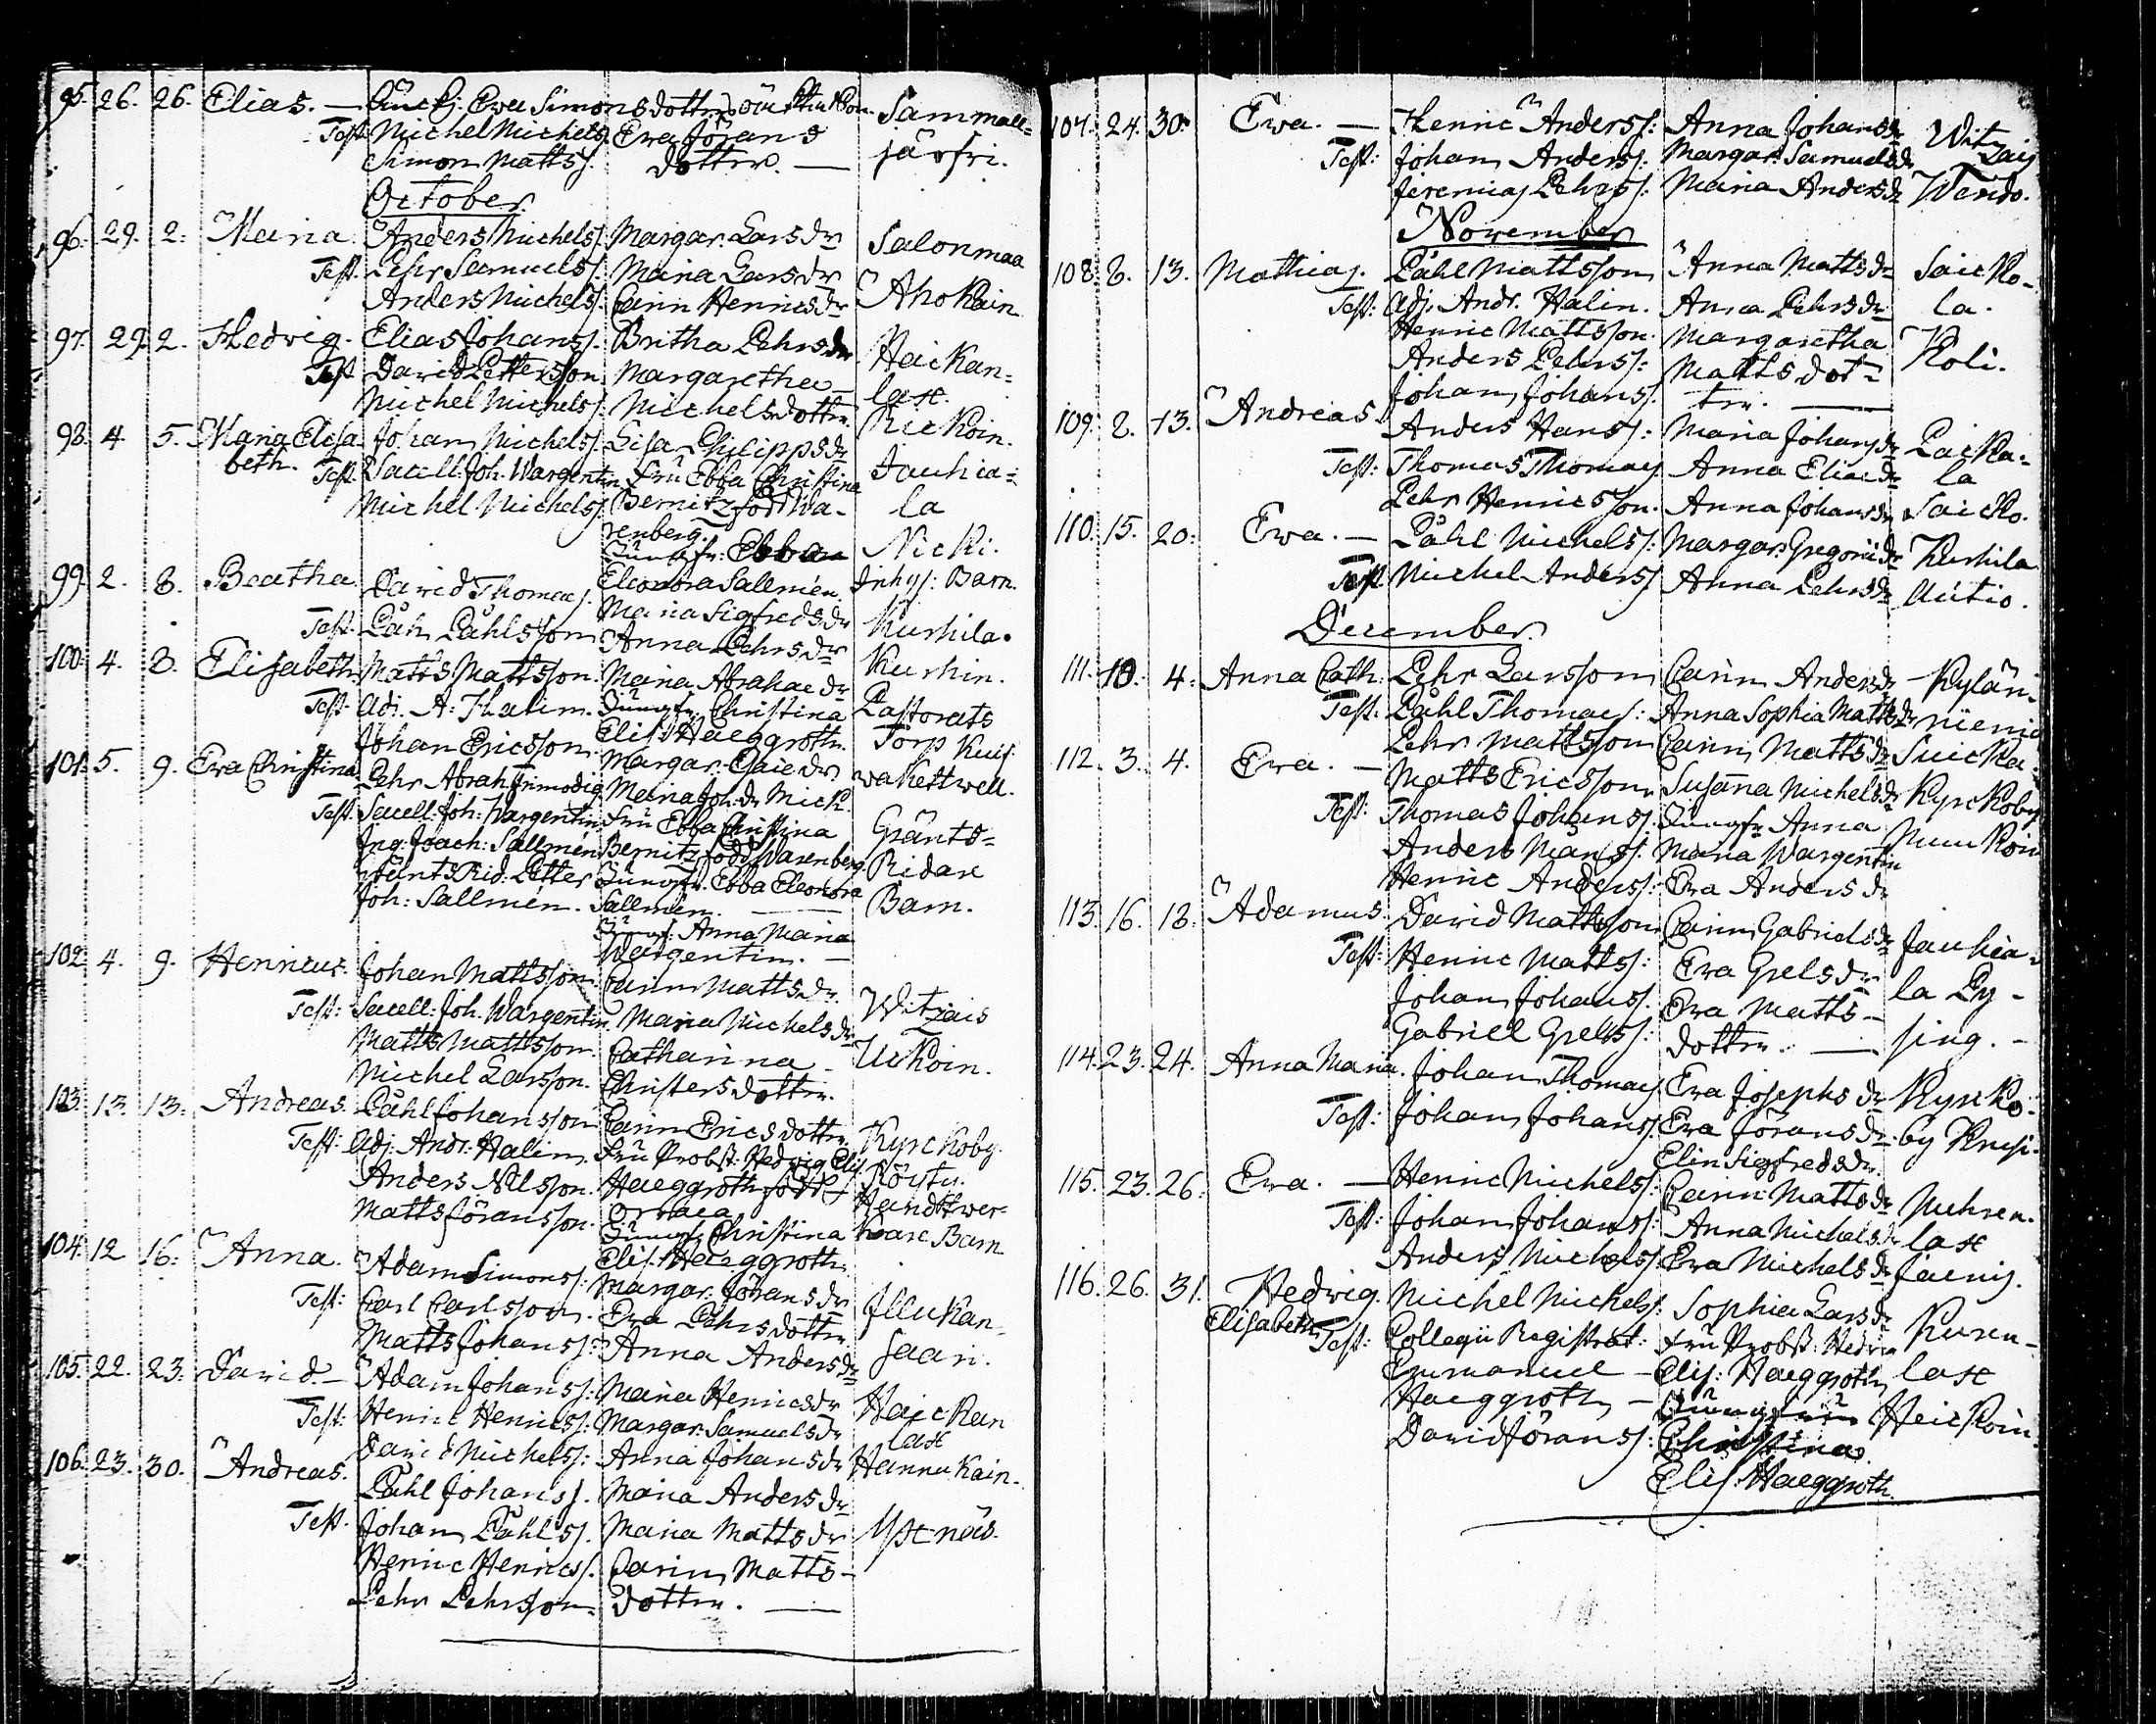 95. 26. 26. Elias. — Ewa Simonsdotters Sammall=
Test. Michel Michelss. Ewa Jörans järfwi.
Simon Mattss. dotter. —
October.
96. 29. 2. Maria. Anders Michelss. Margar. Larsdr Salonmaa
Test. Pehr Samuelss. Maria Larsdr Ahokain.
Anders Michelss. Carin Henricsdr
97. 29. 2. Hedvig. Elias Johanss. Britha Pehrsdr Heickan=
Test. David Pettersson Margaretha lax.
Michel Michelss. Michelsdotter.
98. 4. 5. Maria Elisa Johan Michelss. Lisa Philippsdr Rickoin.
beth. Test. Sacell. Joh. Wargentin Fru Ebba Christina Jauhia=
Michel Michelss. Bernitz född Wa- la
renberg. Nicki.
Jungfr: Ebba
Eleonora Sallmén. Inhys: Barn.
99. 2. 8. Beatha. David Thomass. Maria Sigfredsdr Kurhila.
Test. Påhl Påhlsson Anna Pehrsdr
100. 4. 8. Elisabeth Matts Mattsson. Maria Abrahae dr Kurhin.
Test. Adj. A. Halin. Jungfr. Christina Pastorats
Johan Ericsson. Elis. Haeggroth. Torp Kuif
101. 5. 9. Ewa Christina Pehr Abrah. Frimodig Margar. Caiedr wakettwell.
Maria Joh. dr Nick.
Test. Sacell. Joh: Wargentin Fru Ebba Christina Gränts=
Ing. Joach: Sallmén Bernitz född Warenberg. Ridare
Gränts Rid: Petter Jungfr. Ebba Eleonora Barn.
Joh: Sallmén. Sallmén. —
Jungf: Anna Maria
Wargentin. —
102. 4. 9. Henricus. Johan Mattsson. Carin Mattsdr. Witzais
Test: Sacell: Joh. Wargentin. Maria Michelsdr Uckoin.
Matts Mattsson. Catharina
Michel Larsson. Christersdotter.
103. 13. 13. Andreas. Påhl Johansson Carin Ericsdotter. Kyrckoby.
Test: Adj. Andr. Halin. Fru Probst. Hedvig Elis. Röistu.
Anders Nilsson. Haeggroth född Handtwer=
Matts Jöransson. Orraea kare Barn
Jungf. Christina
Elis. Haeggroth.
104. 12 16. Anna. Adam Simonss. Margar. Jöransdr Illukan=
Test: Carl Carlsson. Ewa Pehrsdotter. saari.
Matts Johanss: Anna Andersdr
105. 22. 23. David. — Adam Johanss: Maria Henricsdr Heickan
Test: Henric Henricss: Margar: Samuelsdr lax
David Michelss: Anna Johansdr Hannukain.
106. 23. 30. Andreas. Påhl Johanss. Maria Andersdr
Test. Johan Påhlss. Maria Mattsdr
Henric Henricss. Carin Matts-
Pehr Pehrsson. dotter. —
107. 24. 30. Ewa. — Henric Anderss: Anna Johansdr Witzais
Test: Johan Anderss. Margar. Samuelsdr
Jeremias Pehrss: Maria Andersdr
November
108. 8. 13. Mathias. Påhl Mattsson Anna Mattsdr Saicko-
Test: Adj. Andr. Halin. Anna Pehrsdr la.
Henric Mattsson Margaretha Koli.
Anders Pehrss: Matts dot-
Johan Johanss. ter. —
109. 8. 13. Andreas. Anders Hanss: Maria Johansdr Paicka=
Test: Thomas Thomass. Anna Eliaedr la
Pehr Henricsson. Anna Johansdr Saicko.
110. 15. 20. Ewa. — Påhl Michelss: Margar: Gregoriidr Kurhila
Test. Michel Anderss Anna Pehrsdr Autio.
December.
111. 10. 4. Anna Cath: Pehr Larsson Carin Andersdr Kylän=
Test. Påhl Thomass: Anna Sophia Mattsdr niemi
Pehr Mattsson Carin Mattsdr Suicka
112. 3. 4. Ewa. — Matts Ericsson. Susanna Michelsdr Kyrckoby
Test: Thomas Johanss. Jungfr. Anna
Anders Månss. Maria Wargentin
Henric Anderss: Ewa Andersdr
113. 16. 18. Adamus. David Mattsson Carin Gabrielsdr Jauhia=
Test: Henric Mattss: Ewa Grelsdr la Py-
Johan Johanss. Ewa Matts- sing. -
Gabriel Grelss: dotter. —
114. 23. 24. Anna Maria. Johan Thomass Ewa Josephsdr Kyrcko-
Test: Johan Johanss. Ewa Jöransdr by Knysi.
Elin Sigfredsdr.
115. 23. 26. Ewa. — Henric Michelss: Carin Mattsdr Nuhren.
Test: Johan Johanss: Anna Michelsdr lax
Anders Michelss. Ewa Michelsdr
116. 26. 31. Hedvig. Michel Michelss: Sophia Larsdr Kuren-
Elisabeth Test: Collegii Registrat: Fru Probst. Hedvig lax
Emmanuel Elis: Haeggroth Heickoin.
Haeggroth — Jungfrun
David Jöranss: Christina
Elis. Haeggroth.